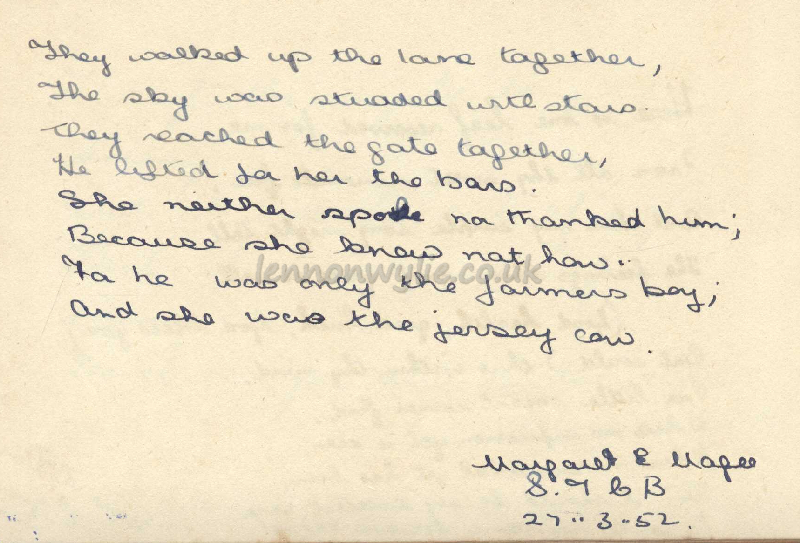 They walked up the lane together,
The sky was studded with stars.
They reached the gate together,
He lifted for her the bars.
She neither spoke no thanked him;
Because she knew not how..
lennonwylie.co.uk
Fo he was only the farmers boy;
And she was the jersey cow.
Margaret E Magee
S. T C B
27..3..52.